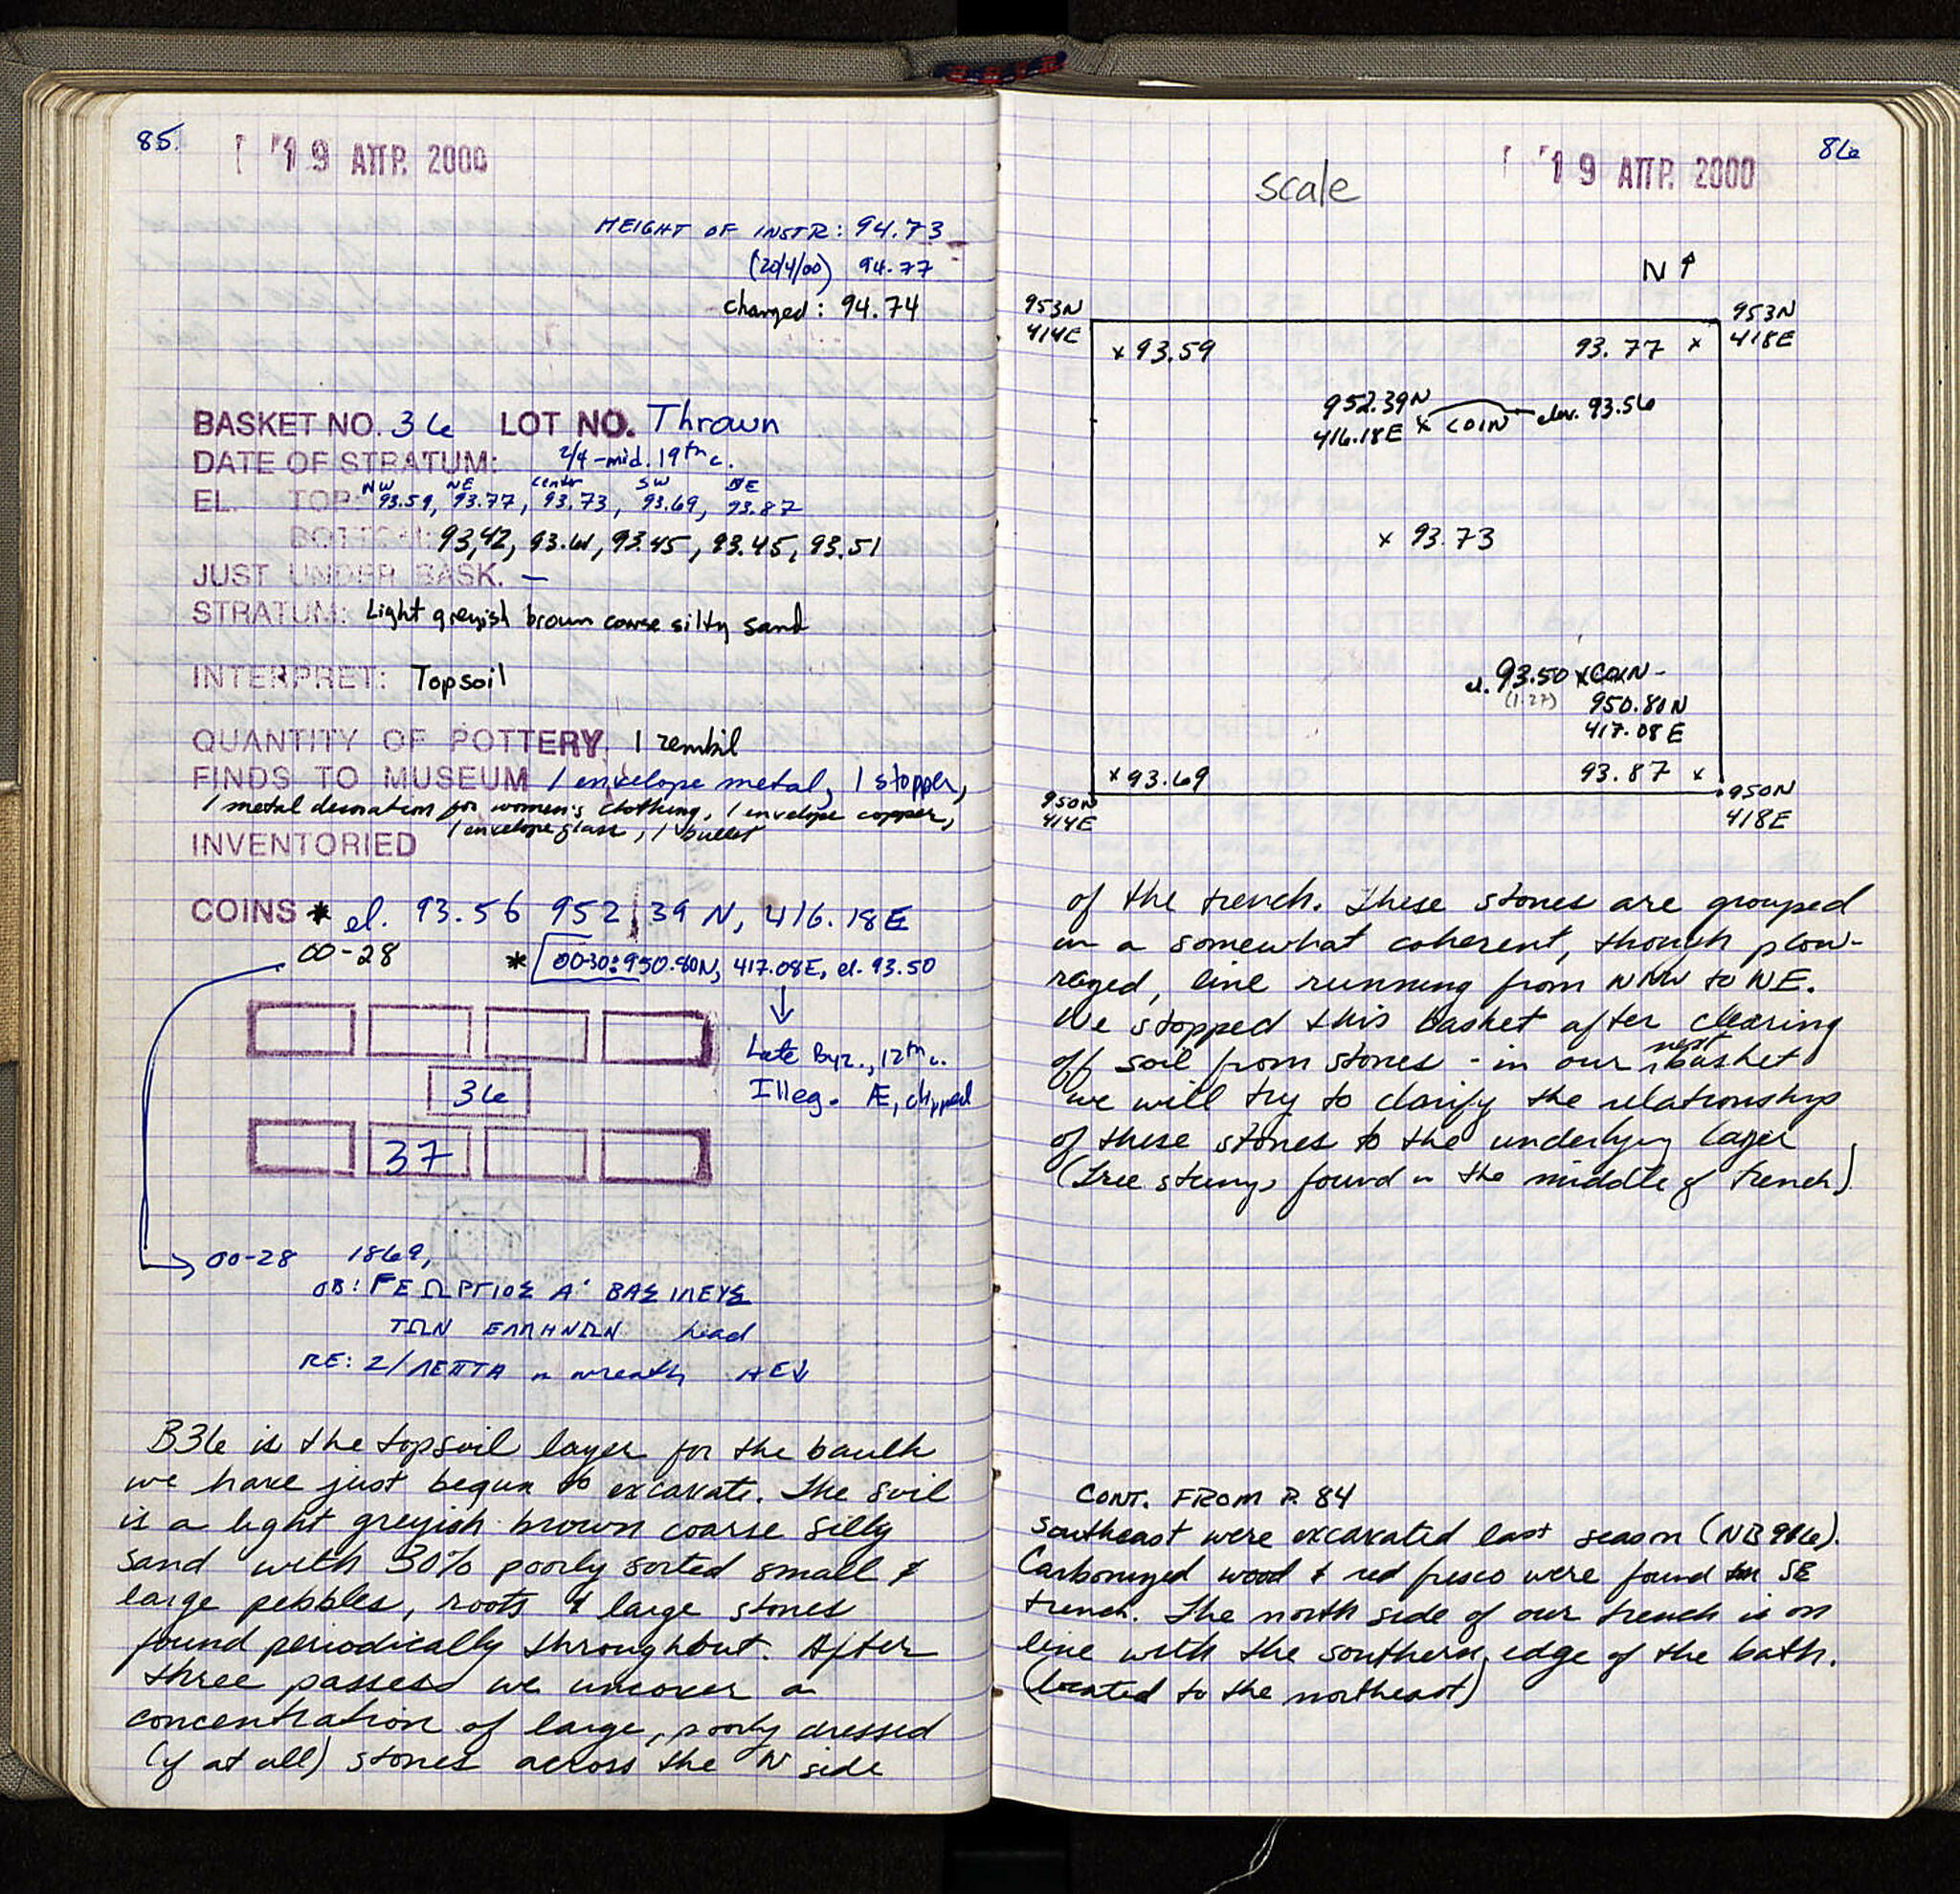 85.
19 ΑΠΡ. 2000
HEIGHT OF INSTR: 94.73
(20/4/00) 94.77
changed: 94.74
BASKET NO. 36 LOT NO. Thrown
DATE OF STRATUM: 2/4-mid. 19th c.
NW NE center SW SE
EL. TOP: 93.59, 93.77, 93.73, 93.69, 93.87
BOTTOM: 93.42, 93.61, 93.45, 93.45, 93.51
JUST UNDER BASK. —
STRATUM: Light greyish brown coarse silty sand
INTERPRET: Topsoil
QUANTITY OF POTTERY. 1 zembil
FINDS TO MUSEUM 1 envelope metal, 1 stopper,
1 metal decoration for women's clothing, 1 envelope copper,
1 envelope glass, 1 bullet
INVENTORIED
COINS * el. 93.56 952.39 N, 416.18E
00-28 * 00-30: 950.80N, 417.08E, el. 93.50
↓
Late Byz., 12th c.
Illeg. Æ, clipped
36
37
→ 00-28 1869,
OB: ΓΕΩΡΓΙΟΣ Α' ΒΑΣΙΛΕΥΣ
ΤΩΝ ΕΛΛΗΝΩΝ head
RE: 2/ΛΕΠΤΑ in wreath AE↓
B36 is the topsoil layer for the baulk
we have just begun to excavate. The soil
is a light greyish brown coarse silty
sand with 30% poorly sorted small &
large pebbles, roots & large stones
found periodically throughout. After
three passes we uncover a
concentration of large, poorly dressed
(if at all) stones across the N side
86
19 ΑΠΡ. 2000
scale
N ↑
953N
414E
953N
418E
x 93.59
93.77 x
952.39N
416.18E x COIN elev. 93.56
x 93.73
el. 93.50 x COIN -
(1.27) 950.80N
417.08E
x 93.69
93.87 x
950N
414E
950N
418E
of the trench. These stones are grouped
in a somewhat coherent, though plow-
raged, line running from NNW to NE.
We stopped this basket after clearing
off soil from stones - in our next basket
we will try to clarify the relationship
of these stones to the underlying layer
(Tree stump found in the middle of trench)
CONT. FROM P. 84
southeast were excavated last season (NB 906).
Carbonized wood & red fresco were found in SE
trench. The north side of our trench is on
line with the southern edge of the bath.
(located to the northeast)